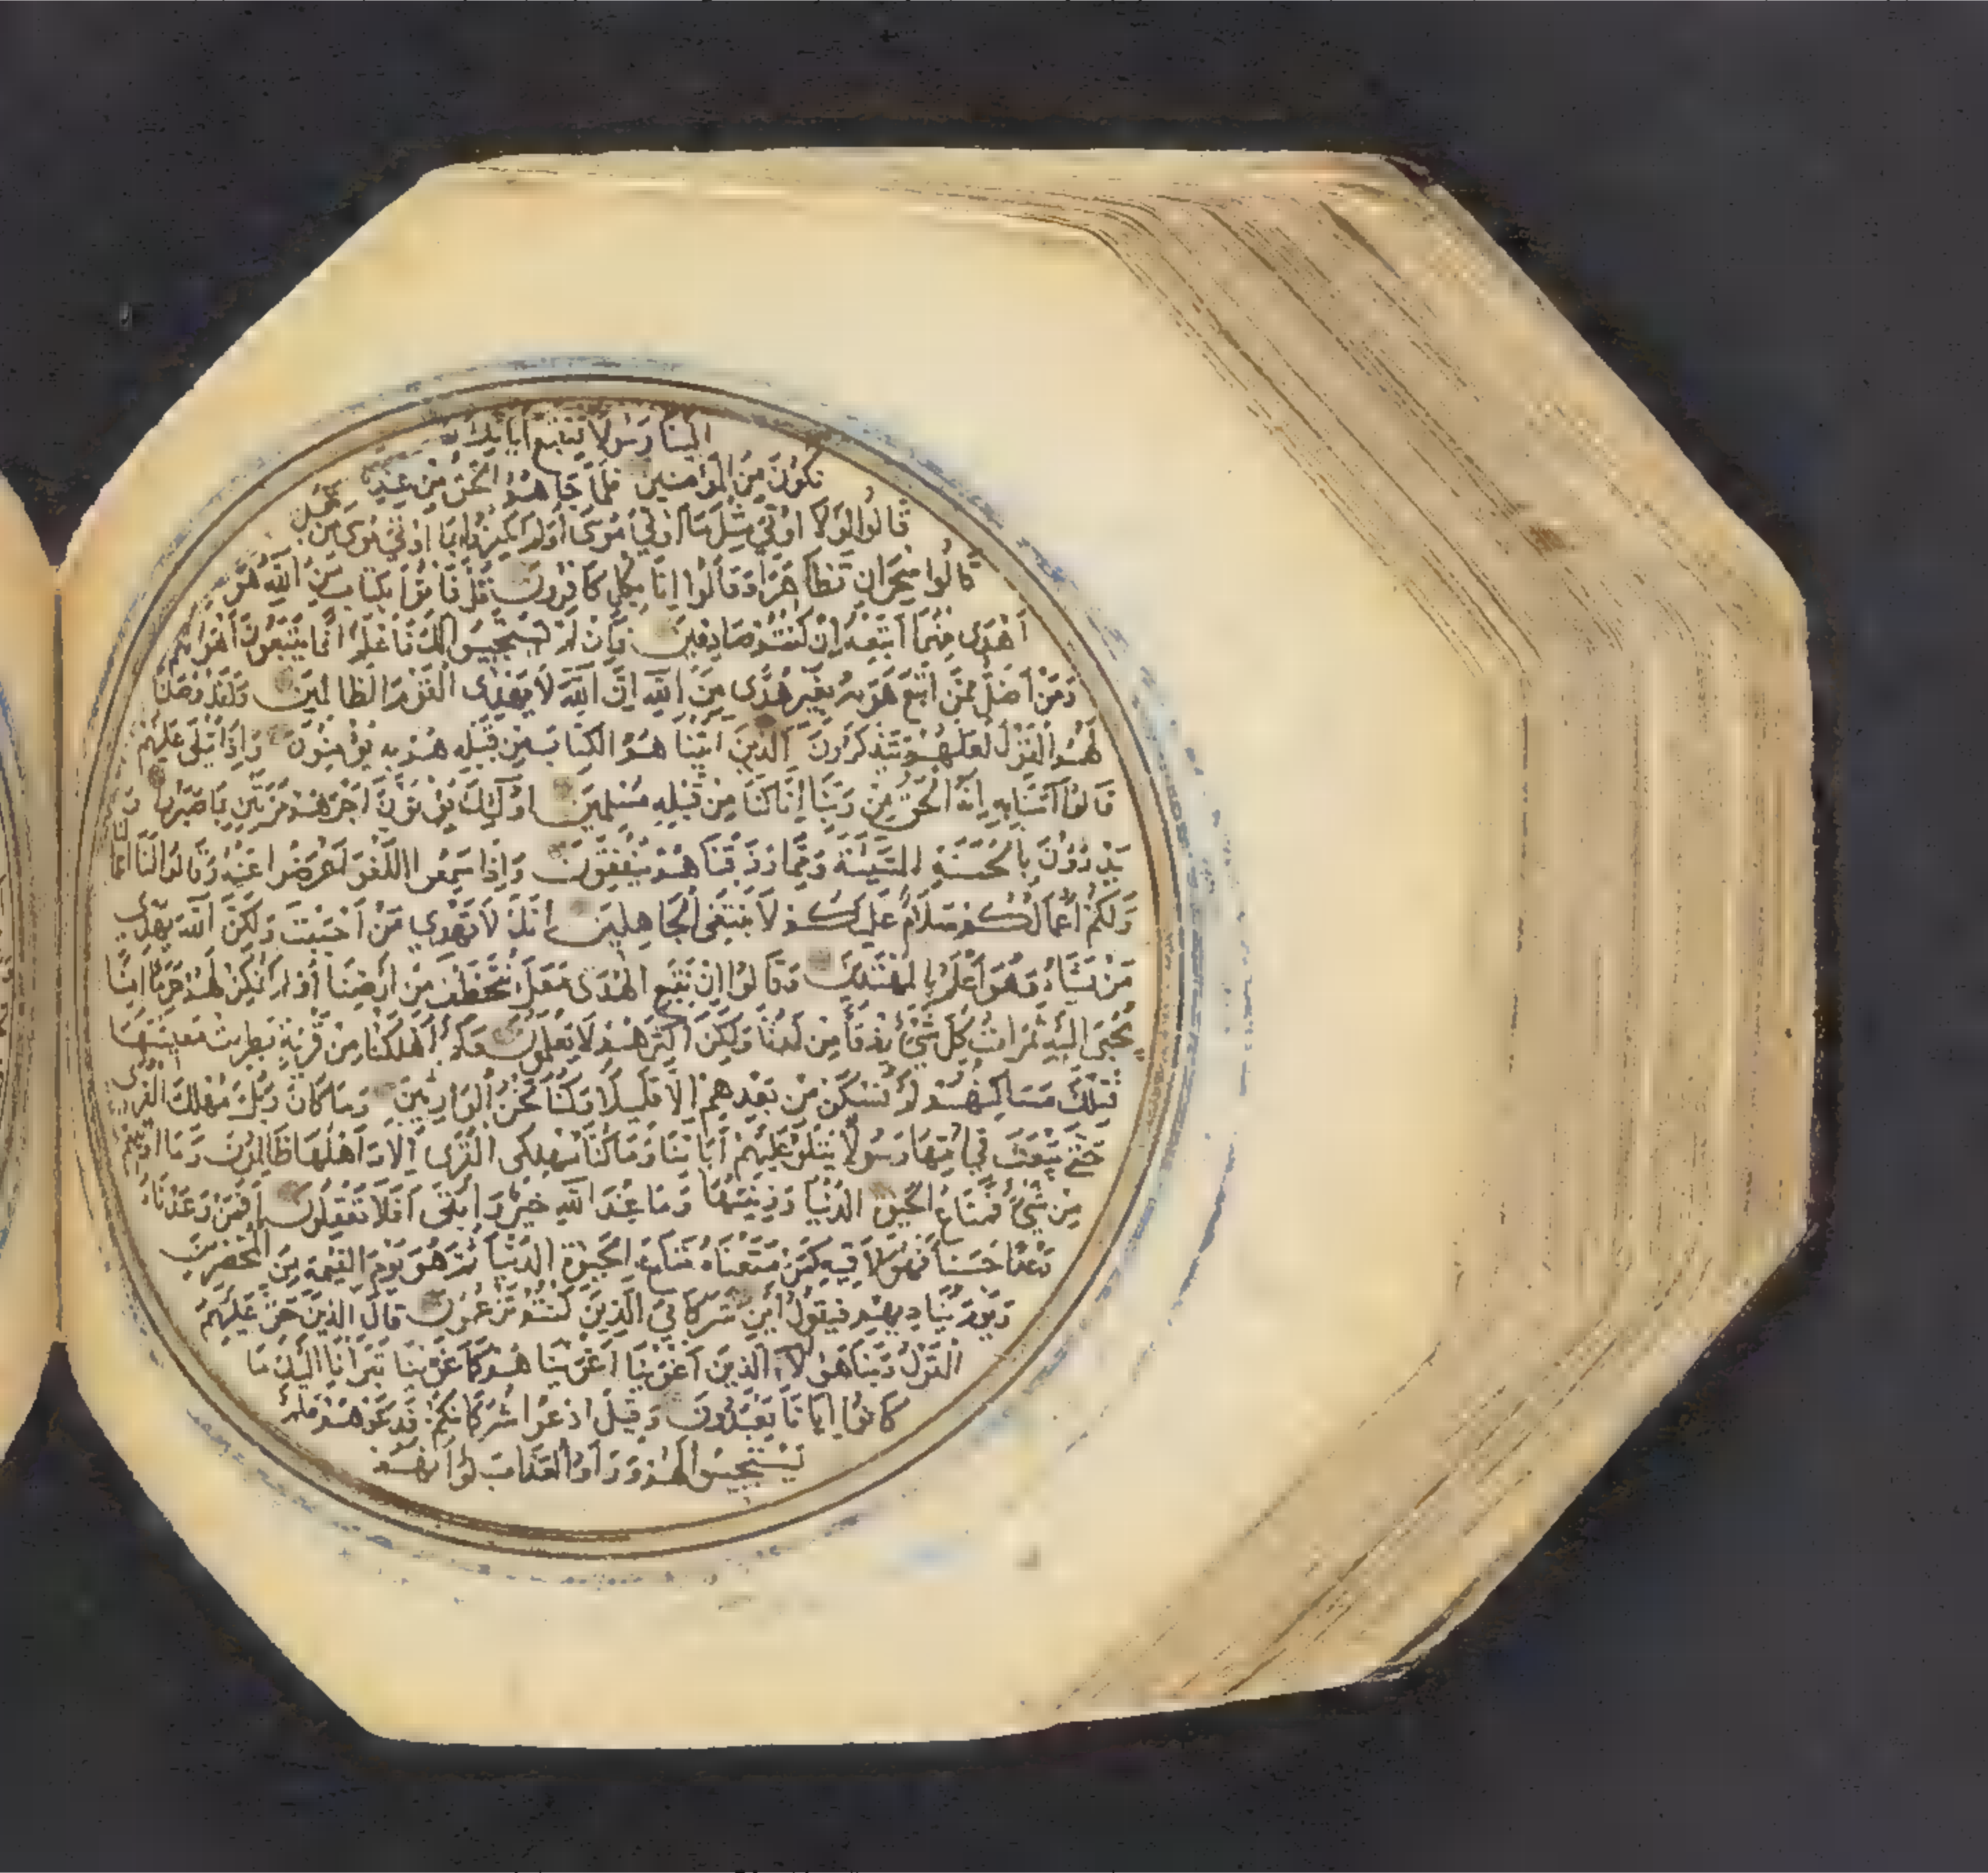 الينا رسولا فنتبع اياتك و
نكون من المؤمنين فلما جاهم الحق من عندنا
قالوا لولا اوتي مثل ما اوتي موسى اولم يكفروا بما اوتي موسى من قبل
قالوا سحران تظاهرا وقالوا انا بكل كافرون قل فاتوا بكتاب من عند الله هو
اهدى منهما اتبعه ان كنتم صادقين فان لم يستجيبوا لك فاعلم انما يتبعون اهواءهم
ومن اضل ممن اتبع هويه بغير هدى من الله ان الله لا يهدى القوم الظالمين ولقد وصلنا
لهم القول لعلهم يتذكرون الذين اتينا هم الكتاب من قبله هم به يؤمنون واذا يتلى عليهم
قالوا آمنا به انه الحق من ربنا انا كنا من قبله مسلمين اولئك يؤتون اجرهم مرتين بما صبروا و
يدرؤن بالحسنة السيئة ومما رزقناهم ينفقون واذا سمعوا اللغو اعرضوا عنه وقالوا لنا اعمالنا
ولكم اعمالكم سلام عليكم لا نبتغى الجاهلين انك لا تهدي من احببت ولكن الله يهدى
من يشاء وهو اعلم بالمهتدين وقالوا ان نتبع الهدى معك نتخطف من ارضنا اولم نمكن لهم حرما امنا
يجبى اليه ثمرات كل شئ رزقا من لدنا ولكن اكثرهم لا يعلمون وكم اهلكنا من قرية بطرت معيشتها
فتلك مساكنهم لم تسكن من بعدهم الا قليلا وكنا نحن الوارثين وما كان ربك مهلك القرى
حتى يبعث في امها رسولا يتلو عليهم اياتنا وما كنا مهلكى القرى الا واهلها ظالمون وما اوتيتم
من شئ فمتاع الحيوة الدنيا وزينتها وما عند الله خير وابقى افلا تعقلون افمن وعدناه
وعدا حسنا فهو لاقيه كمن متعناه متاع الحيوة الدنيا ثم هو يوم القيمة من المحضرين
ويوم يناديهم فيقول اين شركائي الذين كنتم تزعمون قال الذين حق عليهم
القول ربنا هؤلاء الذين اغوينا اغوينا هم كما غوينا تبرانا اليك ما
كانوا ايانا يعبدون وقيل ادعوا شركائكم فدعوهم فلم
يستجيبوا لهم وراوا العذاب لو انهم